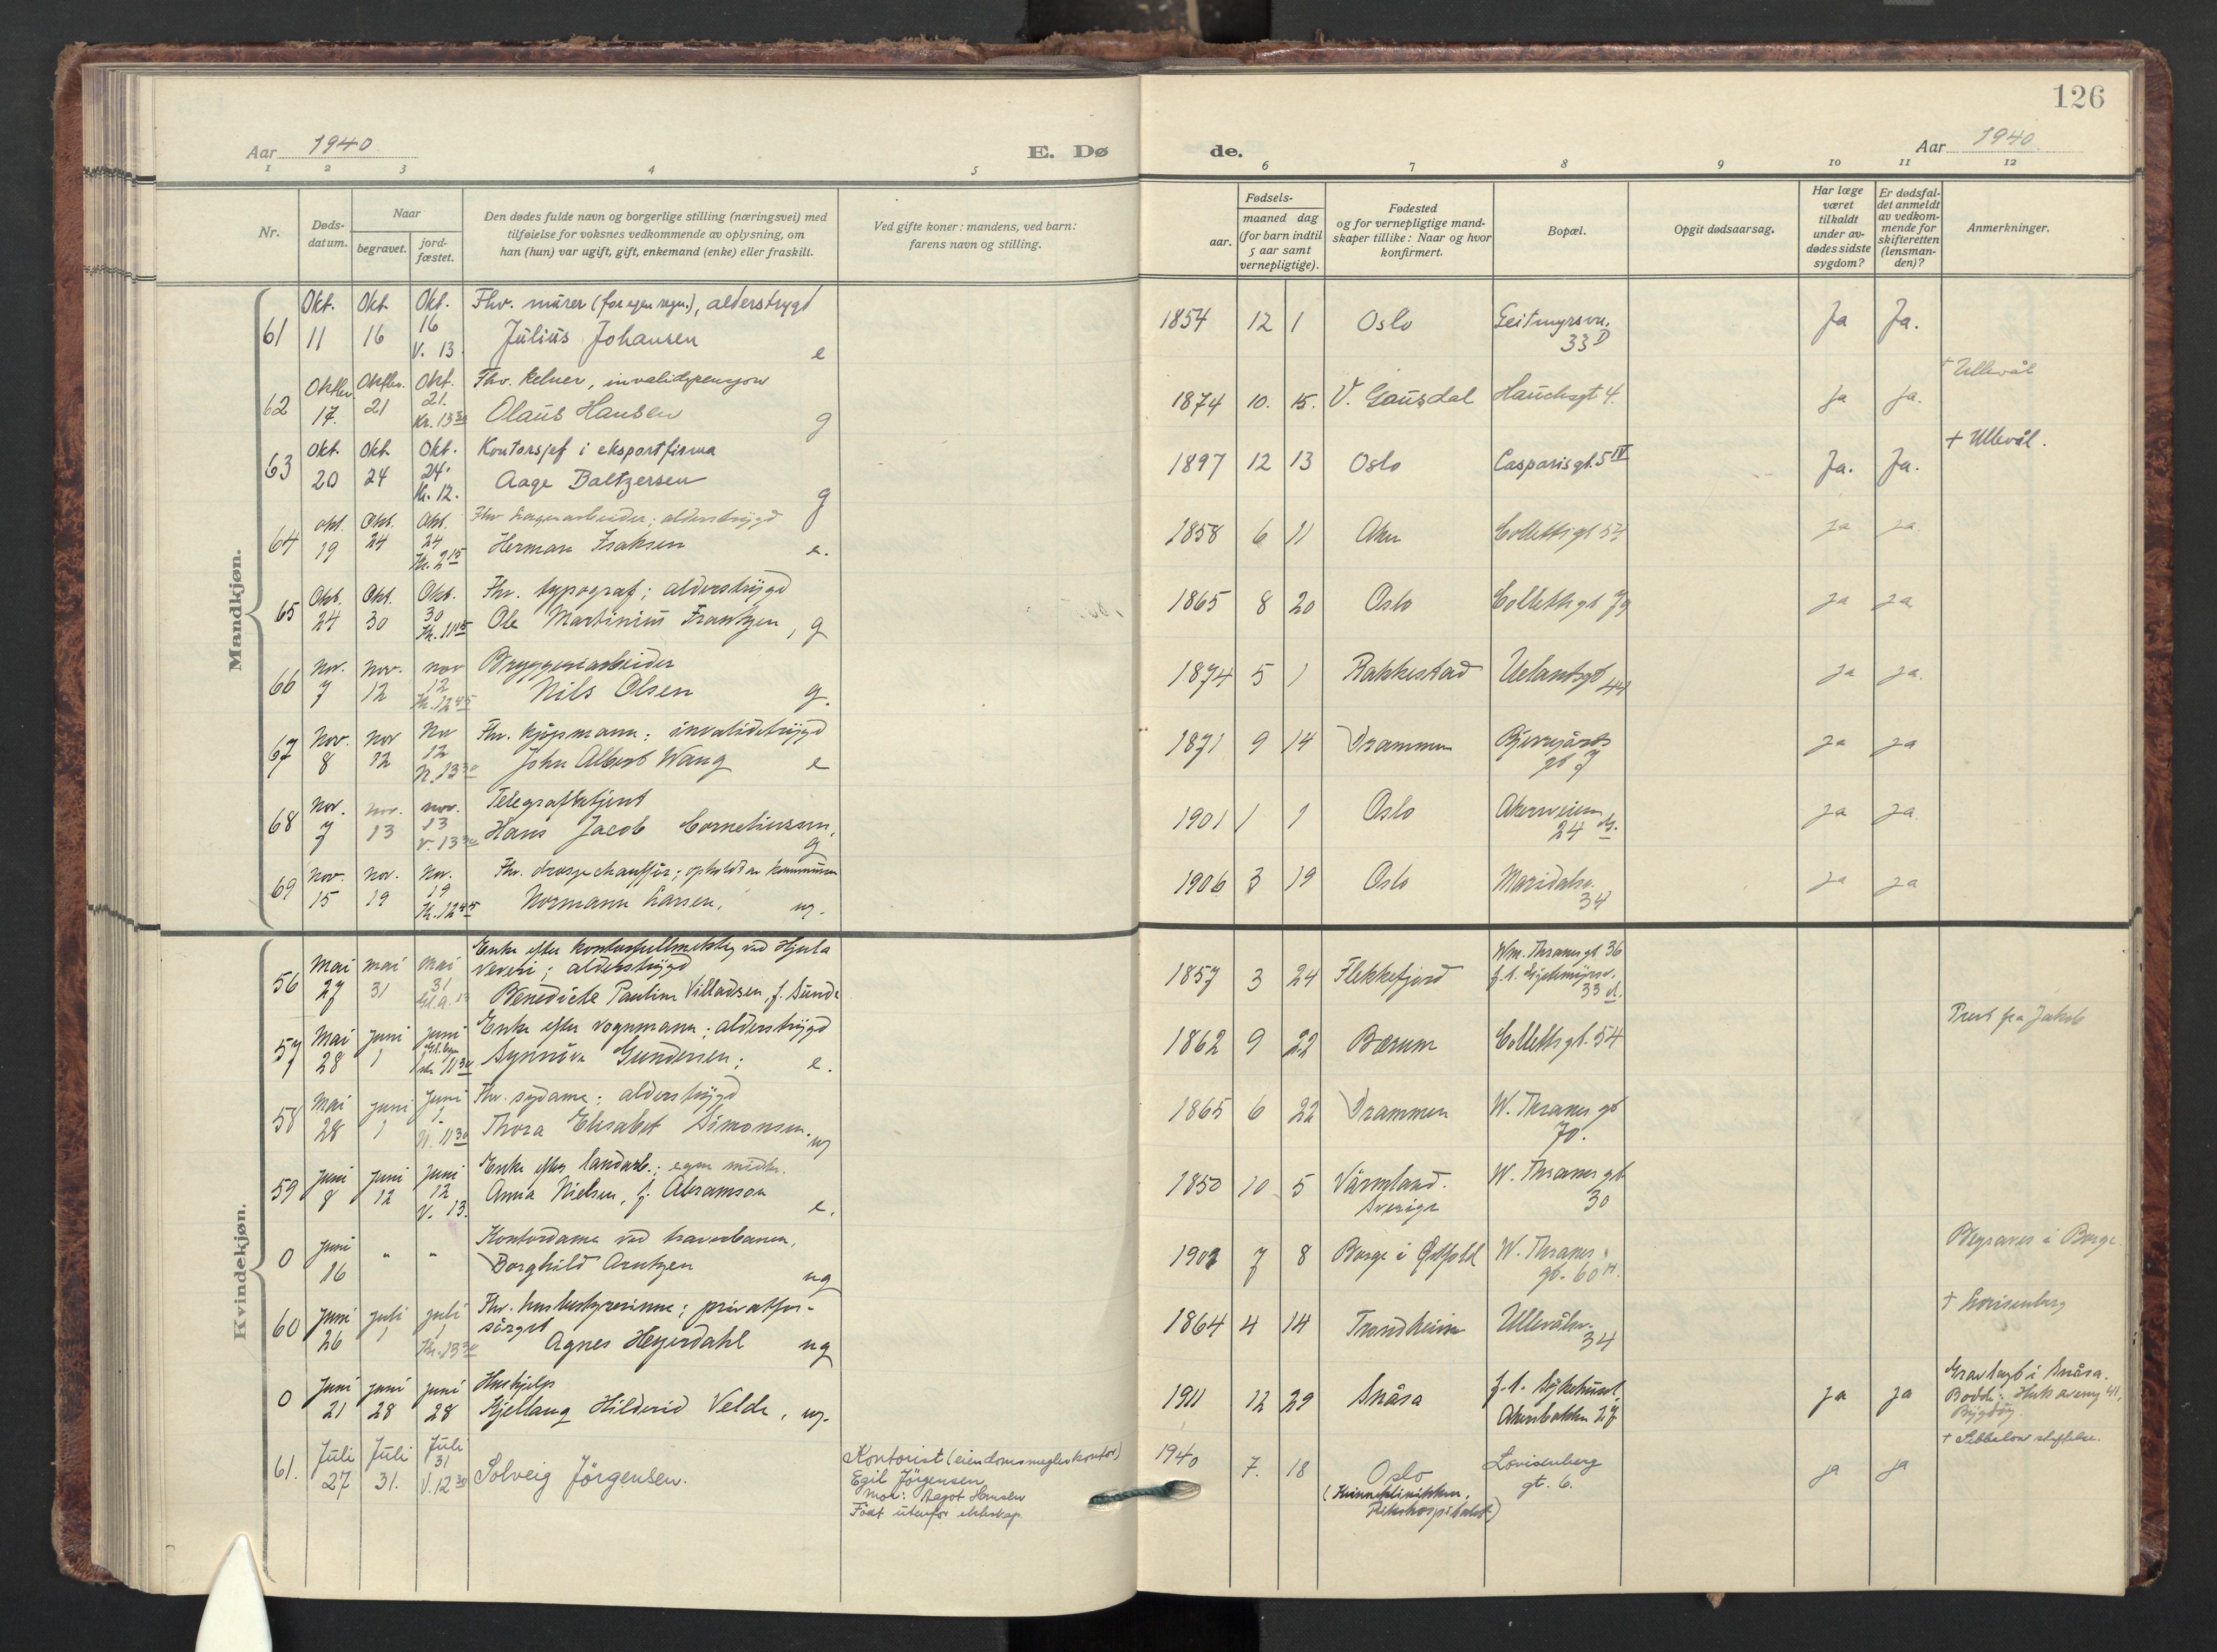 126
Aar 1940
E. Dø de.
Aar 1940.
1 2 3 4 5 6 7 8 9 10 11 12
Nr.
Døds-
datum.
Naar
begravet.
jord-
fæstet.
Den dødes fulde navn og borgerlige stilling (næringsvei) med
tilføielse for voksnes vedkommende av oplysning, om
han (hun) var ugift, gift, enkemand (enke) eller fraskilt.
Ved gifte koner: mandens, ved barn:
farens navn og stilling.
Fødsels-
aar.
maaned dag
(for barn indtil
5 aar samt
vernepligtige).
Fødested
og for vernepligtige mand-
skaper tillike: Naar og hvor
konfirmert.
Bopæl.
Opgit dødsaarsag.
Har læge
været
tilkaldt
under av-
dødes sidste
sygdom?
Er dødsfal-
det anmeldt
av vedkom-
mende for
skifteretten
(lensman-
den)?
Anmerkninger.
Mandkjøn.
61 Okt. 11 Okt. 16 Okt. 16 V. 13. Fhv. mürer (for egen regn.), alderstrygd
Júliús Johansen e 1854 12 1 Oslo Geitmyrsvn. 33 D Ja Ja.
62 Oktbr. 17. Oktbr. 21 Okt. 21. Kr. 13 30 Fhv. kelner, invalidpensjon
Olaús Hansen g 1874 10. 15. V. Gausdal Hauchsgt 4. Ja Ja. † Ullevål
63 Okt. 20 Okt. 24 Okt. 24. Kr. 12. Kontorsjef i eksportfirma
Aage Baltzersen g 1897 12 13 Oslo Casparisgt. 5 IV Ja. Ja. † Ullevål.
64 Okt. 19 Okt. 24 Okt. 24 Kr. 2 15 Fhv. alderstrygd
Herman Isaksen e. 1858 6 11 Aker Collettsgt 54 Ja Ja.
65 Okt. 24 Okt. 30 Okt. 30 Kr. 11 45 Fhv. typograf; alderstrygd
Ole Martiniús Frantzen, g 1865 8 20 Oslo Collettsgt 79 Ja Ja
66 Nov. 7 Nov. 12 Nov 12 Kr. 12 45 Bryggeriarbeider
Nils Olsen g. 1874 5 1 Rakkestad Uelandsgt 44 Ja Ja.
67 Nov. 8 Nov 12 Nov 12 N. 13 30 Fhv. kjøpmann; invalidetrygd
John Albert Wang e 1871 9 14 Drammen gt 7 Ja Ja
68 Nov. 7 Nov. 13 Nov. 13 V. 13 30 Telegrafbetjent
Hans Jacob Corneliussen, g 1901 1 1 Oslo Akersveien 24 Ja Ja
69 Nov. 15 Nov. 19 Nov. 19 Kr. 12 45 Fhv. drosjechauffør; opholdt av kommunen
Normann Larsen, ug. 1906 3 19 Oslo Maridalsv. 34 Ja Ja
Kvindekjøn.
56 Mai 27 Mai 31 Mai 31 Gl. A. 13 Enke efter kontorfullmektig ved Hjula
veveri; alderstrygd
Benedicte Pauline Villadsen, f. Sunde 1857 3 24 Flekkefjord Wm. Thranesgt 36
33
57 Mai 28 Juni 1 Juni 1 11 30 Enke efter vognmann; alderstrygd
Synnøve Gundersen; e. 1862 9 22 Bærum Collettsgt. 54 Prest fra Jakob
58 Mai 28 Juni 1 Juni 1 N. 11 30 Fhv. sydame; alderstrygd
Thora Elisabet Simonsen. ug 1865 6 22 Drammen W. Thranes gt 70.
59 Juni 8 Juni 12 Juni 12 V. 13. Enke efter landarb.; egne midler.
Anna Nielsen, f. Abramson e. 1850 10 5 Värmland. Sverige W. Thranes gt 30
0 Juni 16 " " Kontordame ved travbanen,
Borghild Arntzen ug 1902 7 8 Borge i Østfold W. Thranes gt. 60 Begraves i Borge
60 Juni 26 Juli 1 Juli 1 Kr. 13 30 Fhv. husbestyrerinne; privatfor-
sørget
Agnes Heyerdahl ug 1864 4 14 Trondheim Ullevålsv. 34 † Lovisenberg
0 Juni 21 Juni 28 Juni 28 Hushjelp
Kjellaug Hilderid Velde, ug. 1911 12 29 Snåsa Akersbakken 27 Ja Ja Gravlagt i Snåsa.
Bodde: Huk aveny 41,
Bygdøy.
61. Juli 27 Juli 31. Juli 31 V. 12 30 Solveig Jörgensen. Kontorist (eiendomsmeglerkontor)
Egil Jörgensen
Mor: Aagot Hansen
Født utenfor ekteskap 1940 7. 18 Oslo
(Kvinneklinikken,
Rikshospitalet) Lovisenberg
gt. 6. Ja Ja †